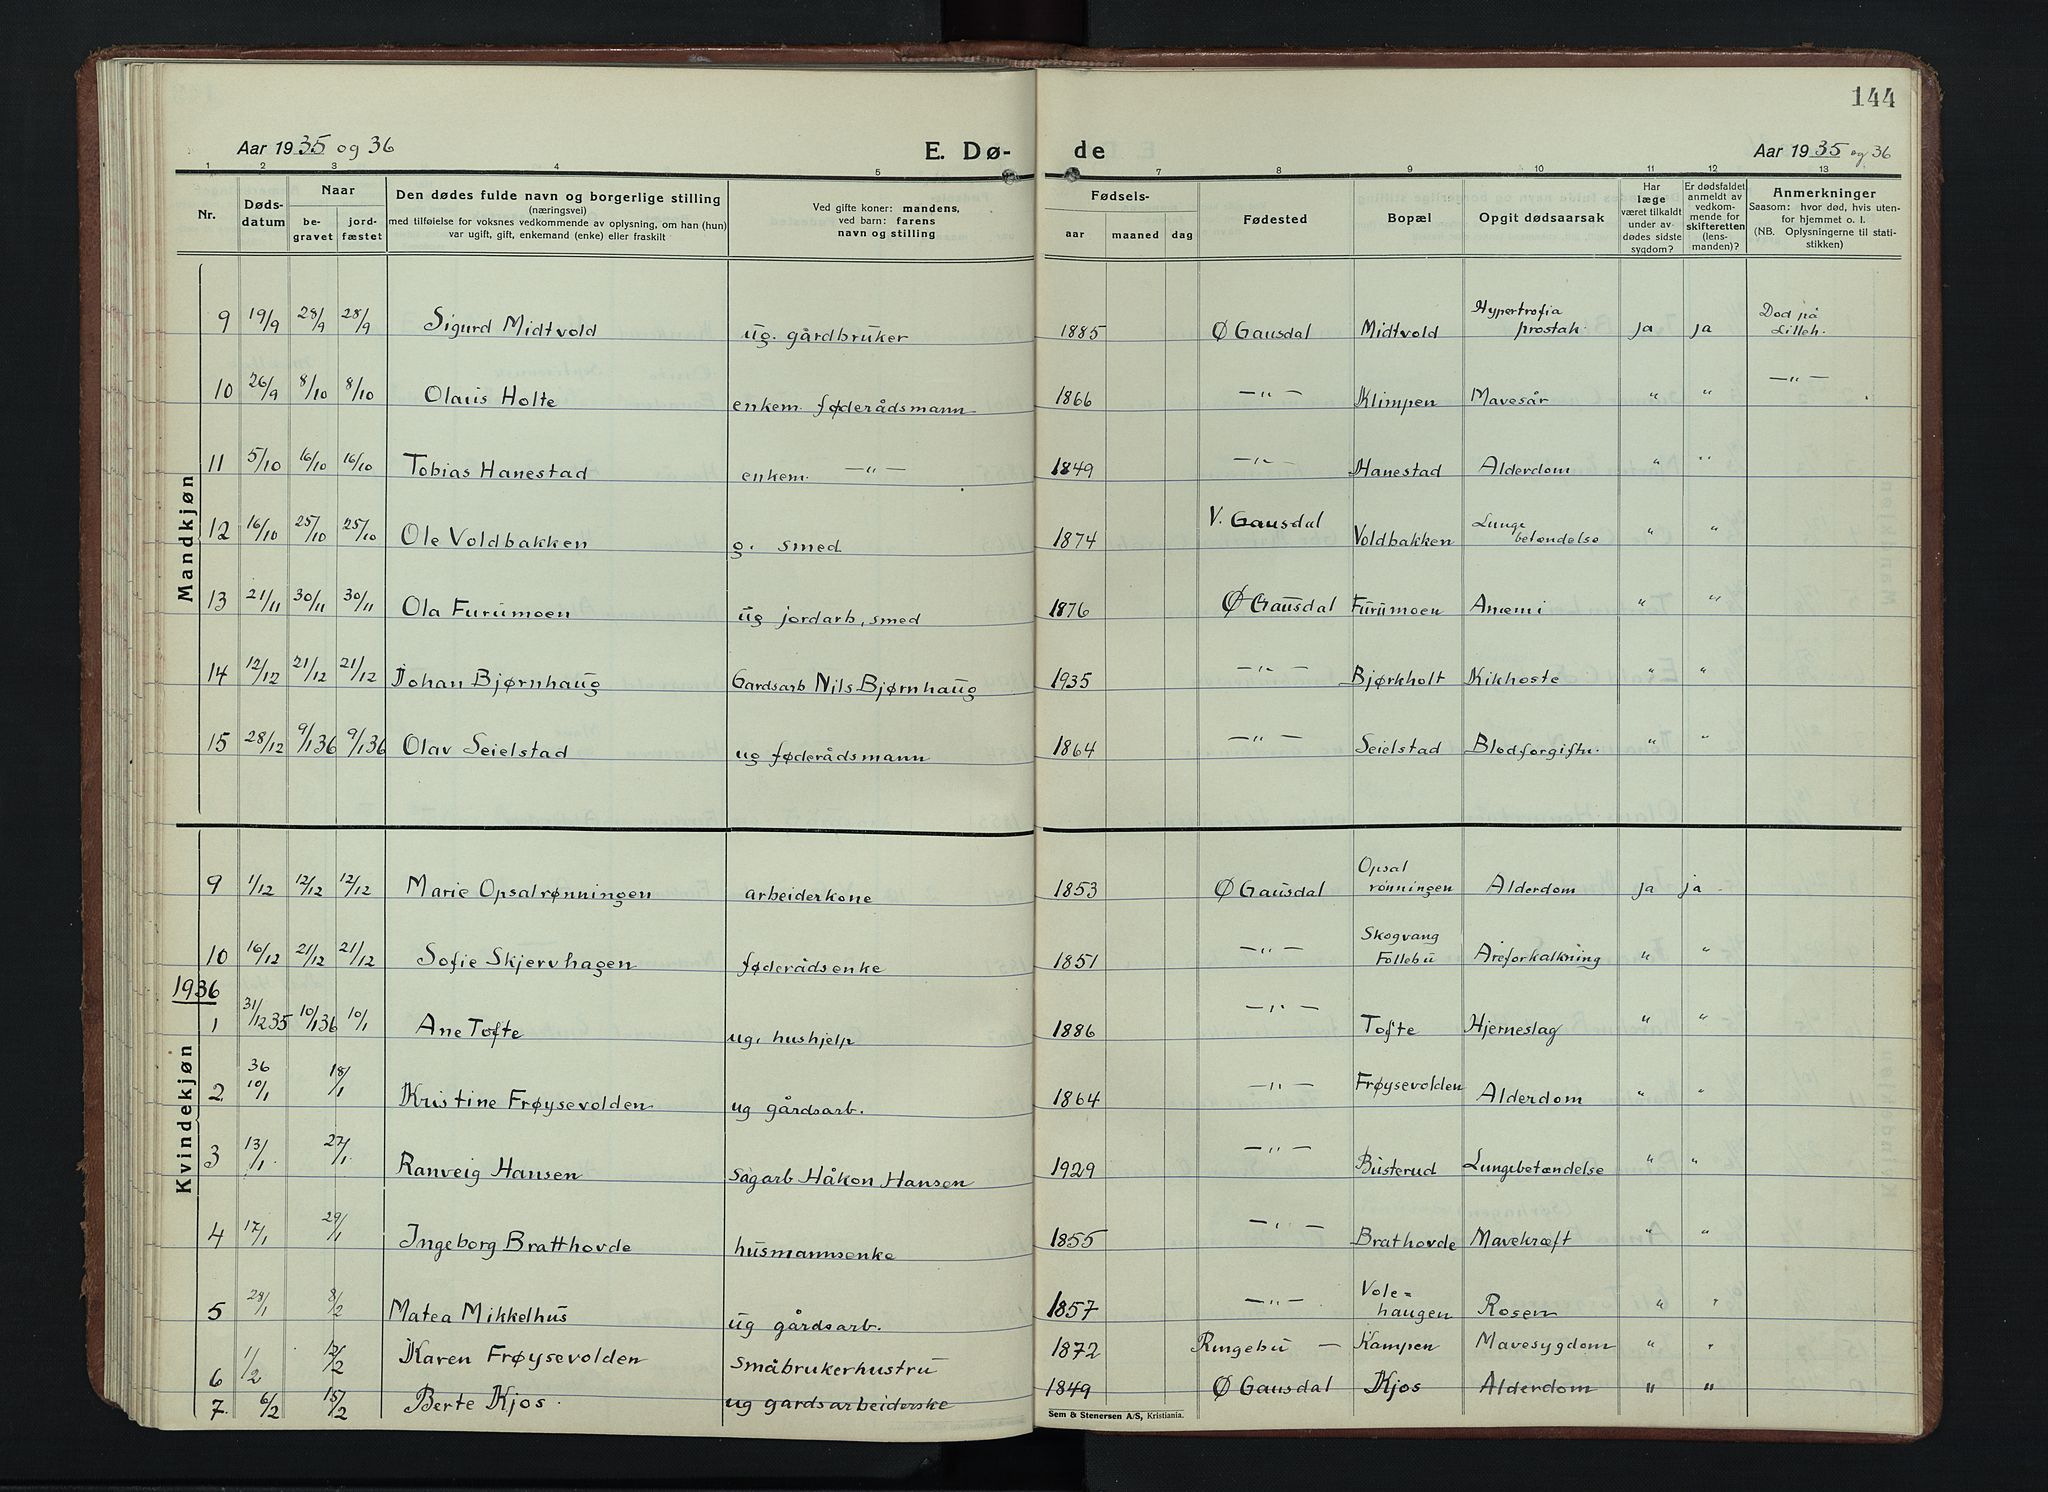 144
Aar 1935 og 36
E. Dø-
de
Aar 1935 og 36
1 2 3 4 5 7 8 9 10 11 12 13
Nr.
Døds-
datum
Naar
be-
gravet
jord-
fæstet
Den dødes fulde navn og borgerlige stilling
(næringsvei)
med tilføielse for voksnes vedkommende av oplysning, om han (hun)
var ugift, gift, enkemand (enke) eller fraskilt
Ved gifte koner: mandens,
ved barn: farens
navn og stilling
Fødsels-
aar maaned dag
Fødested
Bopæl
Opgit dødsaarsak
Har
læge
været tilkaldt
under av-
dødes sidste
sygdom?
Er dødsfaldet
anmeldt av
vedkom-
mende for
skifteretten
(lens-
manden)?
Anmerkninger
Saasom: hvor død, hvis uten-
for hjemmet o. l.
(NB. Oplysningerne til stati-
stikken)
Mandkjøn
9 19/9 28/9 28/9 Sigurd Midtvold ug. gårdbruker 1885 Ø Gausdal Midtvold Hypertrofia prostak. ja ja Død på Lilleh.
10 26/9 8/10 8/10 Olaus Holte enkem. føderådsmann 1866 —"— Klimpen Mavesår " " —"—
11 5/10 16/10 16/10 Tobias Hanestad enkem. —"— 1849 —"— Hanestad Alderdom " "
12 16/10 25/10 25/10 Ole Voldbakken g. smed 1874 V. Gausdal Voldbakken Lunge betændelse " "
13 21/11 30/11 30/11 Ola Furumoen ug jordarb, smed 1876 Ø Gausdal Furumoen Anæmi " "
14 12/12 21/12 21/12 Johan Bjørnhaug Gardsarb Nils Bjørnhaug 1935 —"— Bjørkholt Kikhoste " "
15 28/12 9/1 36 9/1 36 Olav Seielstad ug føderådsmann 1864 —"— Seielstad Blodforgiftn. " "
Kvindekjøn
9 1/12 12/12 12/12 Marie Opsalrønningen arbeiderkone 1853 Ø Gausdal Opsal rønningen Alderdom ja ja
10 16/12 21/12 21/12 Sofie Skjervhagen føderådsenke 1851 —"— Skogvang Follebu Åreforkalkning " "
1936
1 31/12 35 10/1 36 10/1 Ane Tofte ug. hushjelp 1886 —"— Tofte Hjerneslag " "
2 36 10/1 18/1 Kristine Frøysevolden ug gårdsarb. 1864 —"— Frøysevolden Alderdom " "
3 13/1 27/1 Ranveig Hansen Sagarb Håkon Hansen 1929 —"— Busterud Lungebetændelse " "
4 17/1 29/1 Ingeborg Bratthovde husmannsenke 1855 —"— Brathovde Mavekræft " "
5 28/1 8/2 Matea Mikkelhus ug gårdsarb. 1857 —"— Vole= haugen Rosen " "
6 1/2 12/2 Karen Frøysevolden Småbrukerhustru 1872 Ringebu — Kampen Mavesygdom " "
7 6/2 15/2 Berte Kjos. ug gardsarbeiderske 1849 Ø Gausdal Kjos Alderdom " "
Sem & Stenersen A/S, Kristiania.